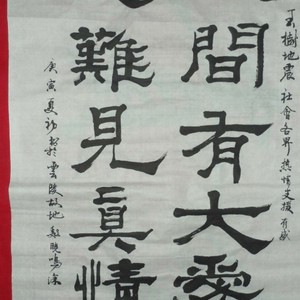 玉樹地震社會各界熱情支援有感
間有大愛
難見真情
庚寅夏初書於雲陵故地